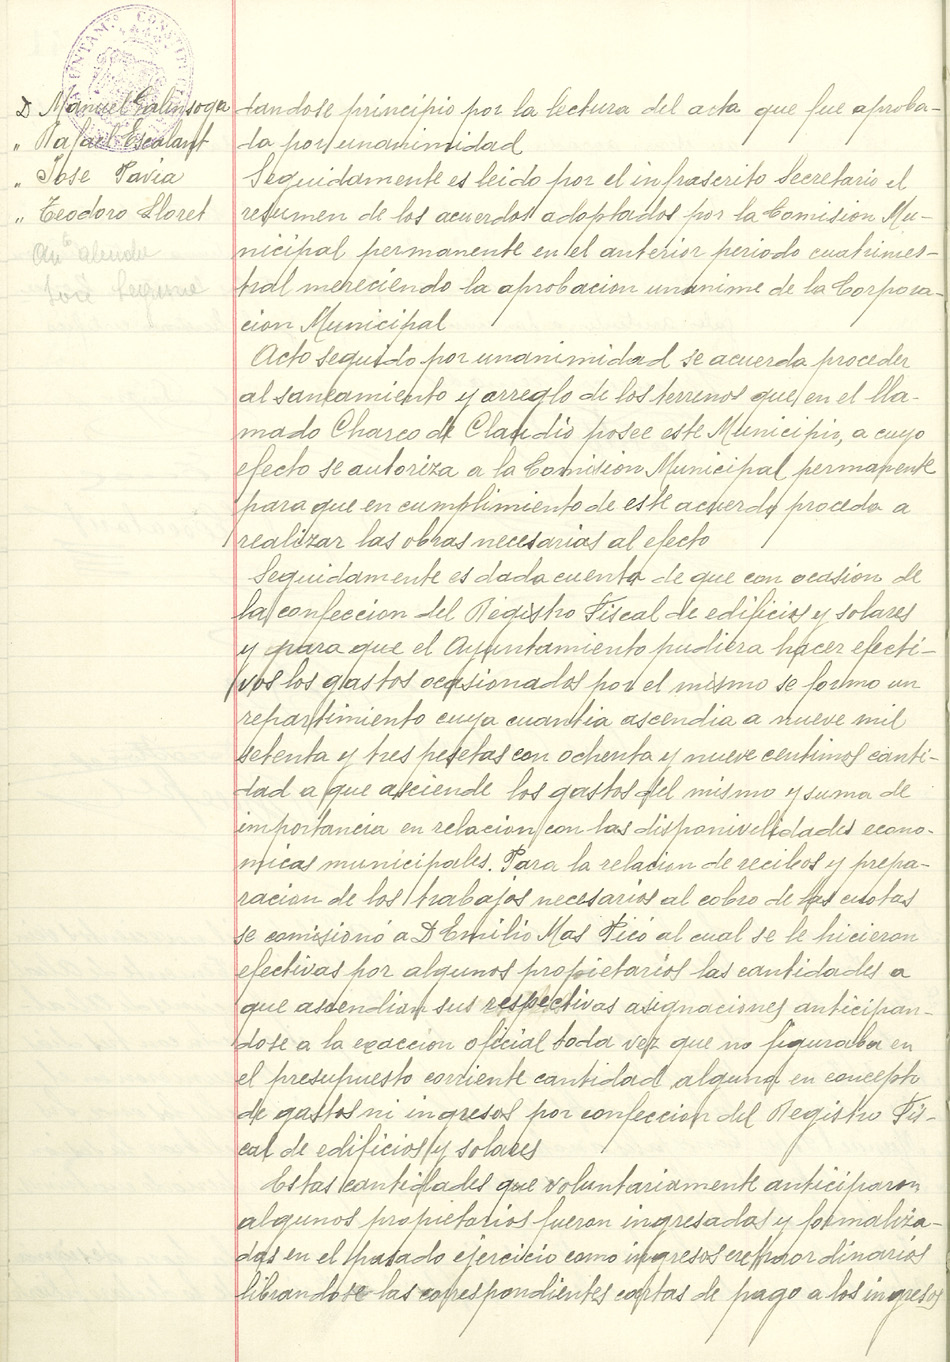 D Manuel Galinsoga
" Rafael Escalant
" Jose Pavia
" Teodoro Lloret
tandose principio por la lectura del acta que fue aproba-
da por unanimidad
Seguidamente es leido por el infrascrito Secretario el
resumen de los acuerdos adoptados por la Comision Mu-
nicipal permanente en el anterior periodo cuatrimes-
tral mereciendo la aprobacion unanime de la Corpora-
cion Municipal
Acto seguido por unanimidad se acuerda proceder
al saneamiento y arreglo de los terrenos que en el lla-
mado Charco de Claudio posee este Municipio, a cuyo
efecto se autoriza a la Comision Municipal permanente
para que en cumplimiento de este acuerdo proceda a
realizar las obras necesarias al efecto
Seguidamente es dada cuenta de que con ocasion de
la confeccion del Registro Fiscal de edificios y solares
y para que el Ayuntamiento pudiera hacer efecti-
vos los gastos ocasionados por el mismo se formo un
repartimiento cuya cuantia ascendia a nueve mil
setenta y tres pesetas con ochenta y nueve centimos canti-
dad a que asciende los gastos del mismo y suma de
importancia en relacion con las disponivelidades econo-
micas municipales. Para la relacion de recibos y prepa-
racion de los trabajos necesarios al cobro de las cuotas
se comisionó a D Emilio Mas Picó al cual se le hicieron
efectivas por algunos propietarios las cantidades a
que ascendian sus respectivas asignaciones anticipan-
dose a la exaccion oficial toda vez que no figuraba en
el presupuesto corriente cantidad alguna en concepto
de gastos ni ingresos por confeccion del Registro Fis-
cal de edificios y solares
Estas cantidades que voluntariamente anticiparon
algunos propietarios fueron ingresadas y formaliza-
das en el pasado ejercicio como ingresos extraordinarios
librandose las correspondientes cartas de pago a los ingresos